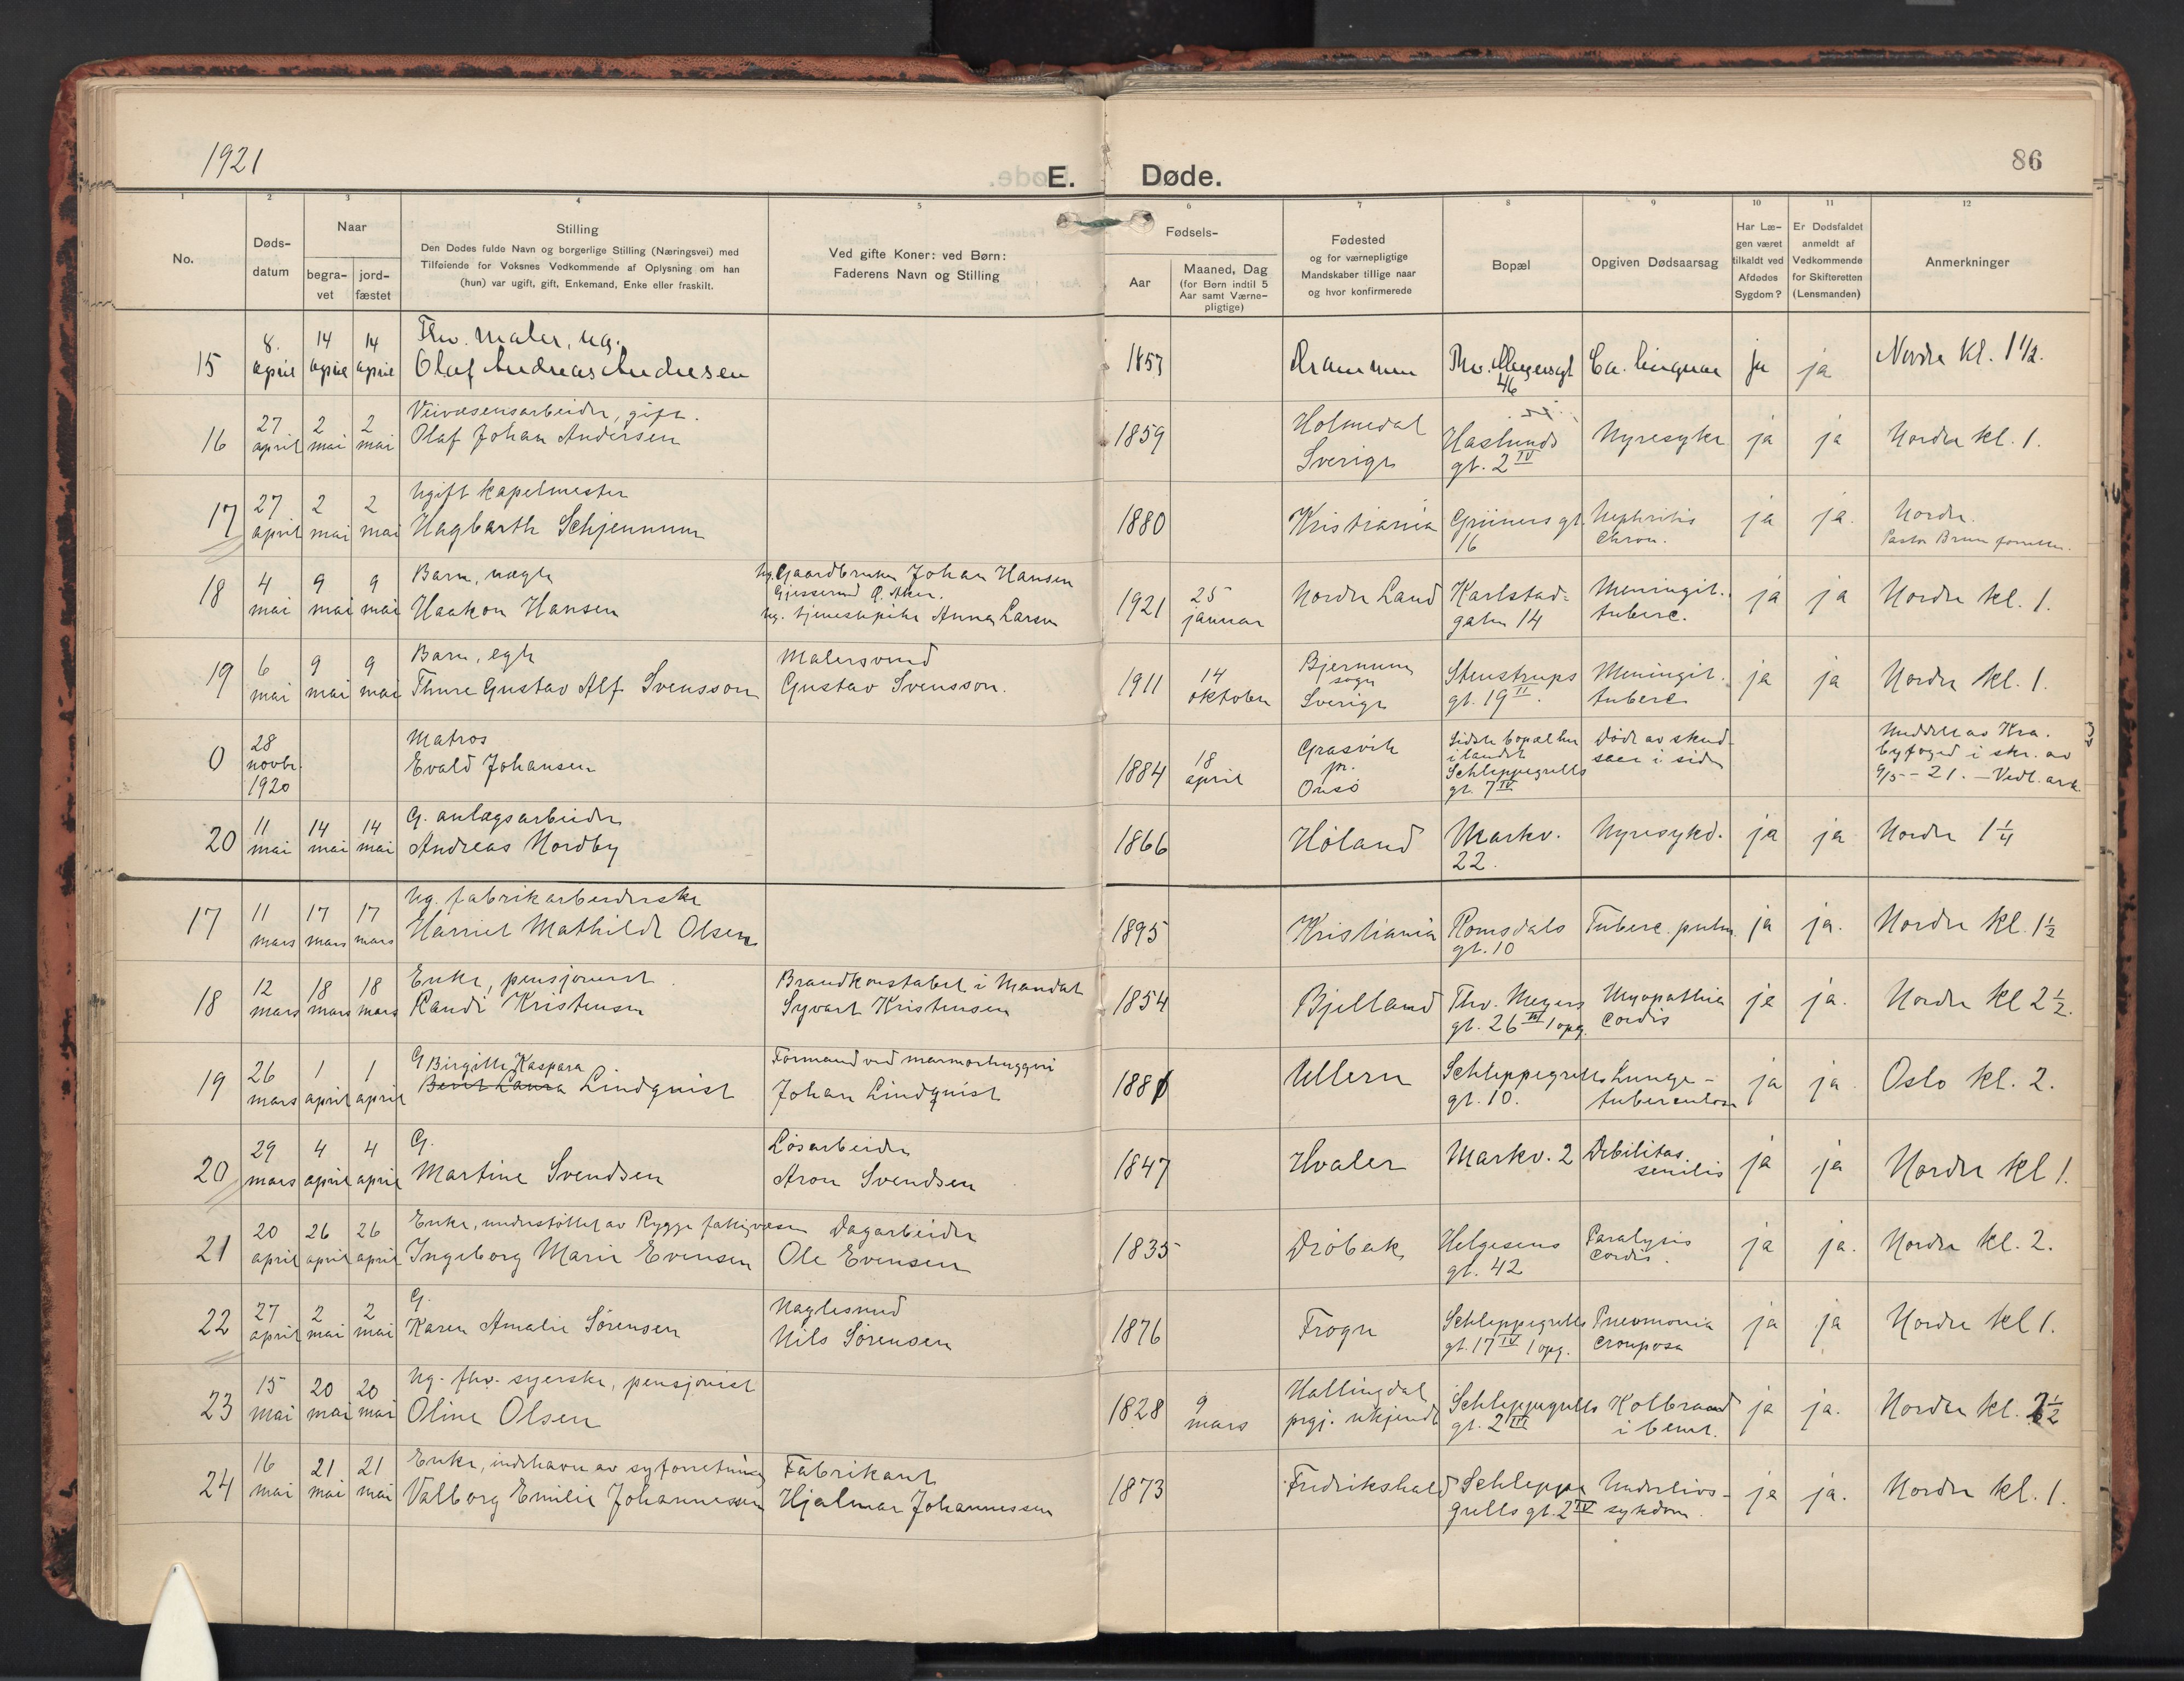 1921
E. Døde.
86
1 2 3 4 5 6 7 8 9 10 11 12
No.
Døds-
datum
Naar
begra-
vet
jord-
fæstet
Stilling
Den Dødes fulde Navn og borgerlige Stilling (Næringsvei) med
Tilføiende for Voksnes Vedkommende af Oplysning om han
(hun) var ugift, gift, Enkemand, Enke eller fraskilt.
Ved gifte Koner: ved Børn:
Faderens Navn og Stilling
Fødsels-
Aar
Maaned, Dag
(for Børn indtil 5
Aar samt Værne-
pligtige)
Fødested
og for værnepligtige
Mandskaber tillige naar
og hvor konfirmerede
Bopæl
Opgiven Dødsaarsag
Har Læ-
gen været
tilkaldt ved
Afdødes
Sygdom?
Er Dødsfaldet
anmeldt af
Vedkommende
for Skifteretten
(Lensmanden)
Anmerkninger
15
8.
april
14
april
14
april
Fhv. maler, ug.
Olaf Andreas Andresen
1857
Drammen
Thv. Meyersgt
46
Ca. linguae
ja
ja
Nordre kl. 1 1/2.
16
27
april
2
mai
2
mai
Veivæsensarbeider, gift.
Olaf Johan Andersen
1859
Holmedal
Sverige
Haslunds
gt. 2 IV
Nyresyke
ja
ja
Nordre kl. 1.
17
27
april
2
mai
2
mai
Ugift kapelmester
Hagbarth Schjennum
1880
Kristiania
Grüners gt.
16
Nephritis
chron.
ja
ja.
Nordre.
Pastor Brun
18
4
mai
9
mai
9
mai
Barn, uegte
Haakon Hansen
Ug. Gaardbruker Johan Hansen
ug. tjenestepike Anna Larsen
1921
25
januar
Nordre Land
Karlstad-
gaten 14
Meningit.
tuberc.
ja
ja
Nordre kl. 1.
19
6
mai
9
mai
9
mai
Barn, egte
Thure Gustav Alf Svensson
Malersvend
Gustav Svensson.
1911
14
oktober
Bjernum
sogn
Sverige
Stenstrups
gt. 19 II.
Meningit.
tuberc
ja
ja
Nordre kl. 1.
0
28
novbr.
1920
Matros
Evald Johansen
1884
18
april
Grasvik
pr.
Onsö
Sidste bopæl her
i landet
Schleppegrells
gt. 7 IV
Död av skud-
saar i siden
Meddelt av Kra.
byfoged i skr. av
9/5-21. - Vedl. ark.
20
11
mai
14
mai
14
mai
G. anlægsarbeider
Andreas Nordby
1866
Höland
Markv.
22.
Nyresykd.
ja
ja
Nordre 1 1/4
17
11
mars
17
mars
17
mars
Ug. fabrikarbeiderske
Harriet Mathilde Olsen
1895
Kristiania
Romsdals
gt. 10
Tuberc. pulm.
ja
ja.
Nordre kl. 1 1/2
18
12
mars
18
mars
18
mars
Enke, pensjonist
Randi Kristensen
Brandkonstabel i Mandal
Syvart Kristensen
1854
Bjelland
Thv. Meyers
gt. 26 III 1 opg.
Myopathia
cordis
ja
ja.
Nordre kl 2 1/2.
19
26
mars
1
april
1
april
G Birgitte Kaspara
Berit Laura Lindquist
Formand ved marmorhuggeri
Johan Lindquist
1881
Ullern
Schleppegrells
gt. 10.
Lunge-
tuberculose
ja
ja.
Oslo kl. 2.
20
29
mars
4
april
4
april
G.
Martine Svendsen
Lösarbeider
Aron Svendsen
1847
Hvaler
Markv. 2
Debilitas
senilis
ja
ja
Nordre kl 1.
21
20
april
26
april
26
april
Enke, understöttet av Rygge fattigvæsen
Ingeborg Marie Evensen
Dagarbeider
Ole Evensen
1835
Dröbak
Helgesens
gt. 42
Paralysis
cordis.
ja
ja.
Nordre kl. 2.
22
27
april
2
mai
2
mai
G.
Karen Amalie Sörensen
Naglesmed
Nils Sörensen
1876
Frogn
Schleppegrells
gt. 17 IV 1 opg.
Pneumonia
crouposa
ja
ja
Nordre kl 1.
23
15
mai
20
mai
20
mai
Ug. fhv. syerske, pensjonist
Oline Olsen
1828
9
mars
Hallingdal
prgj. ukjendt
Schleppegrells
gt. 2 III
Kolbrand
i benet.
ja
ja.
Nordre kl. 2 1/2
24
16
mai
21
mai
21
mai
Enke, indehaver av syforretning
Valborg Emilie Johannessen
Fabrikant
Hjalmar Johannessen
1873
Fredrikshald
Schleppe
grells gt. 2 IV
Underlivs-
sykdom.
ja
ja.
Nordre kl. 1.